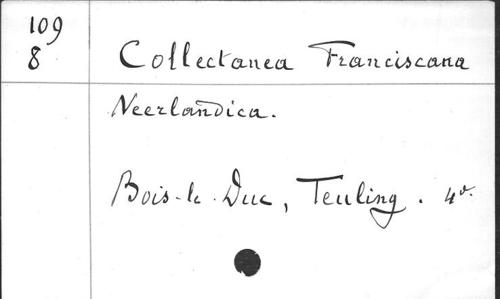 109
8
Collectanea Franciscana
Neerlandica.
Bois-le-Duc, Teuling. 4°.